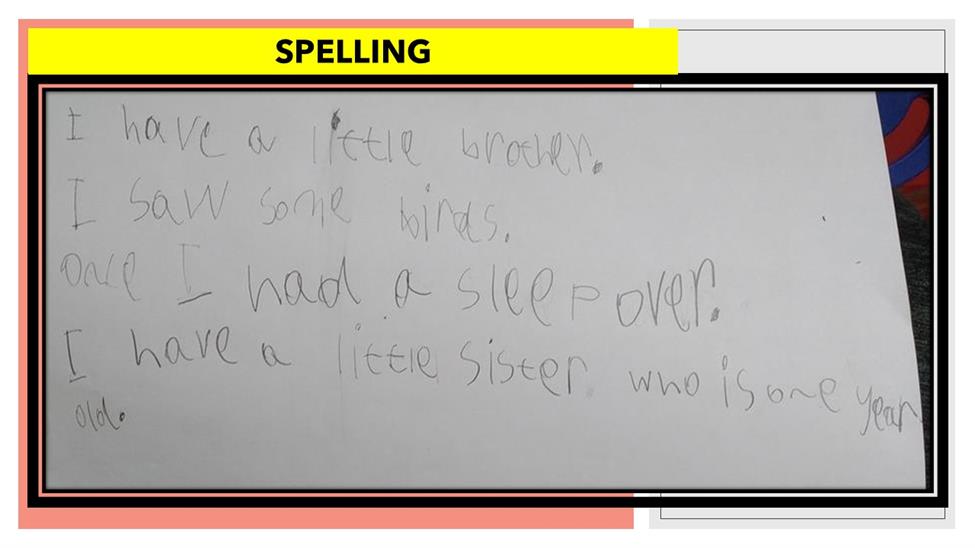 SPELLING
I have a little brother.
I saw some birds.
once I had a sleep over.
I have a little sister who is one year
old.